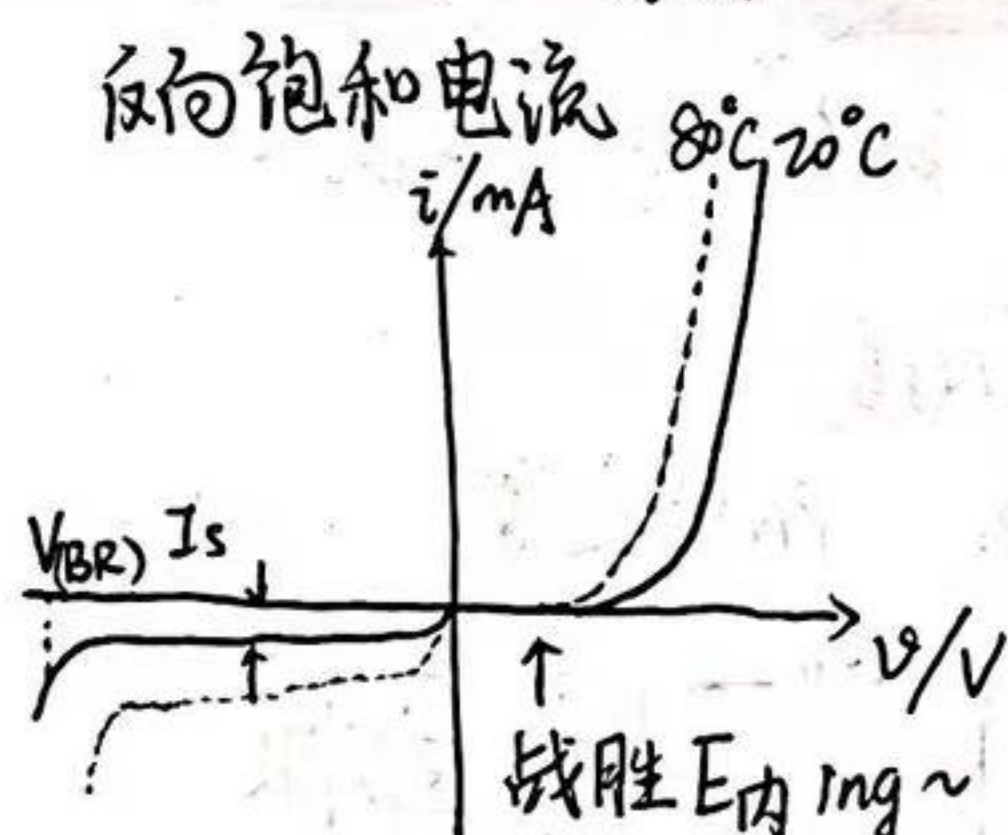 反向饱和电流
80°C 20°C
i/mA
V(BR) Is
v/V
战胜 E内 ing ~